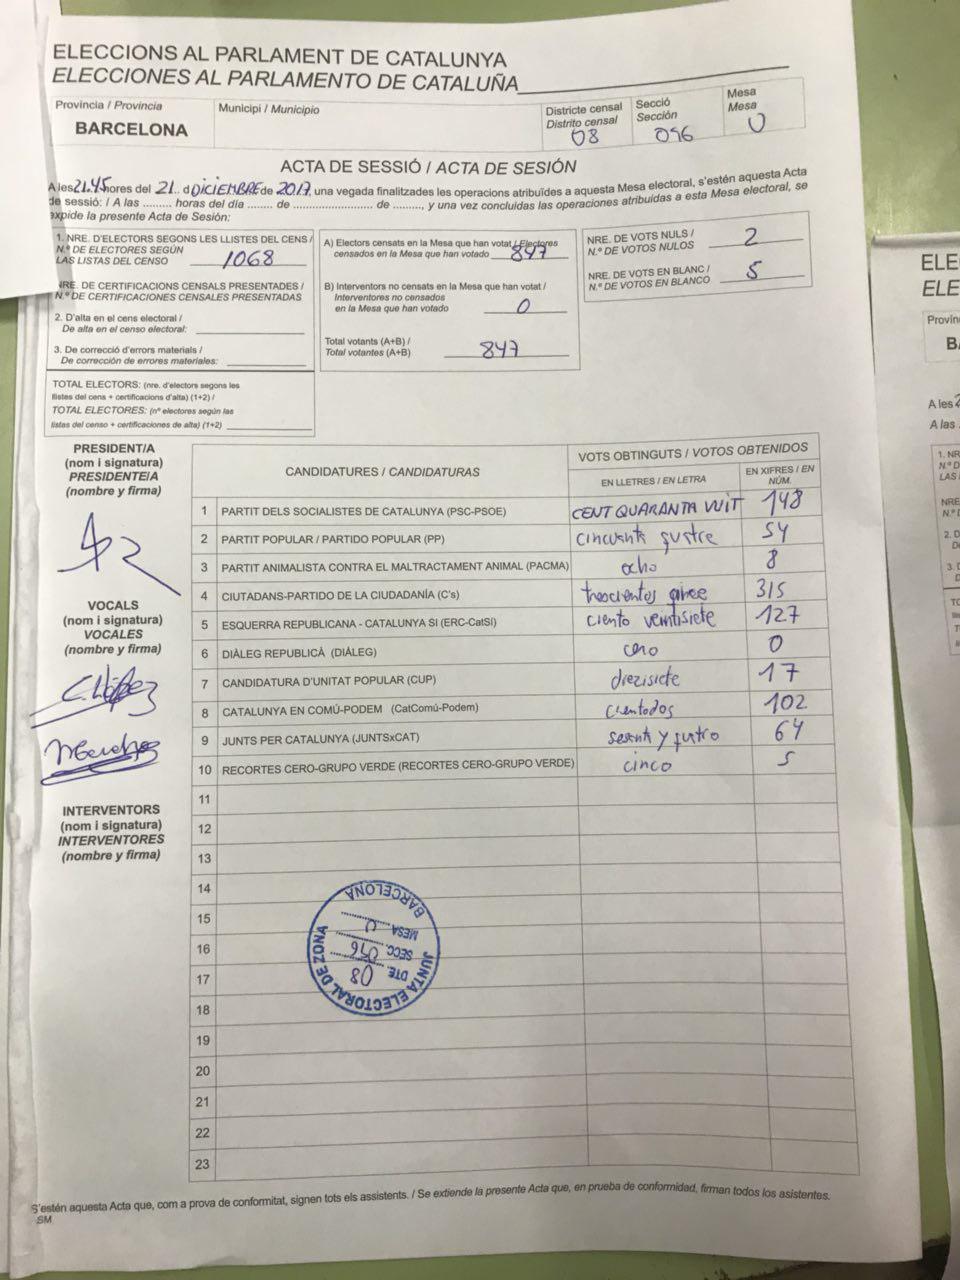 ELECCIONS AL PARLAMENT DE CATALUNYA
ELECCIONES AL PARLAMENTO DE CATALUÑA
Provincia / Provincia
BARCELONA
Municipi / Municipio
Districte censal
Distrito censal
08
Secció
Sección
096
Mesa
Mesa
U
ACTA DE SESSIÓ / ACTA DE SESIÓN
A les 21.45 hores del 21 .. d DICIEMBRE de 2017, una vegada finalitzades les operacions atribuïdes a aquesta Mesa electoral, s'estén aquesta Acta
de sessió: / A las ......... horas del día ....... de ........................ de ........, y una vez concluidas las operaciones atribuidas a esta Mesa electoral, se
expide la presente Acta de Sesión:
1. NRE. D'ELECTORS SEGONS LES LLISTES DEL CENS /
N.º DE ELECTORES SEGÚN
LAS LISTAS DEL CENSO 1068
NRE. DE CERTIFICACIONS CENSALS PRESENTADES /
N.º DE CERTIFICACIONES CENSALES PRESENTADAS
2. D'alta en el cens electoral /
De alta en el censo electoral:
3. De correcció d'errors materials /
De corrección de errores materiales:
TOTAL ELECTORS: (nre. d'electors segons les
llistes del cens + certificacions d'alta) (1+2) /
TOTAL ELECTORES: (nº electores según las
listas del censo + certificaciones de alta) (1+2)
A) Electors censats en la Mesa que han votat / Electores
censados en la Mesa que han votado 847
B) Interventors no censats en la Mesa que han votat /
Interventores no censados
en la Mesa que han votado 0
Total votants (A+B) /
Total votantes (A+B) 847
NRE. DE VOTS NULS /
N.º DE VOTOS NULOS 2
NRE. DE VOTS EN BLANC /
N.º DE VOTOS EN BLANCO 5
PRESIDENT/A
(nom i signatura)
PRESIDENTE/A
(nombre y firma)
VOCALS
(nom i signatura)
VOCALES
(nombre y firma)
C. López
INTERVENTORS
(nom i signatura)
INTERVENTORES
(nombre y firma)
CANDIDATURES / CANDIDATURAS
VOTS OBTINGUTS / VOTOS OBTENIDOS
EN LLETRES / EN LETRA
EN XIFRES / EN
NÚM.
1 PARTIT DELS SOCIALISTES DE CATALUNYA (PSC-PSOE) CENT QUARANTA VUIT 148
2 PARTIT POPULAR / PARTIDO POPULAR (PP) cincuenta 54
3 PARTIT ANIMALISTA CONTRA EL MALTRACTAMENT ANIMAL (PACMA) ocho 8
4 CIUTADANS-PARTIDO DE LA CIUDADANÍA (C's) trescientos quince 315
5 ESQUERRA REPUBLICANA - CATALUNYA SI (ERC-CatSI) ciento veintisiete 127
6 DIÀLEG REPUBLICÀ (DIÀLEG) cero 0
7 CANDIDATURA D'UNITAT POPULAR (CUP) diezisiete 17
8 CATALUNYA EN COMÚ-PODEM (CatComú-Podem) cientodos 102
9 JUNTS PER CATALUNYA (JUNTSxCAT) 64
10 RECORTES CERO-GRUPO VERDE (RECORTES CERO-GRUPO VERDE) cinco 5
11
12
13
14
15
16
17
18
19
20
21
22
23
JUNTA ELECTORAL DE ZONA
BARCELONA
DTE. 08
SECC. 096
MESA U
S'estén aquesta Acta que, com a prova de conformitat, signen tots els assistents. / Se extiende la presente Acta que, en prueba de conformidad, firman todos los asistentes.
SM
ELE
ELE
Provin
B
A les
A las